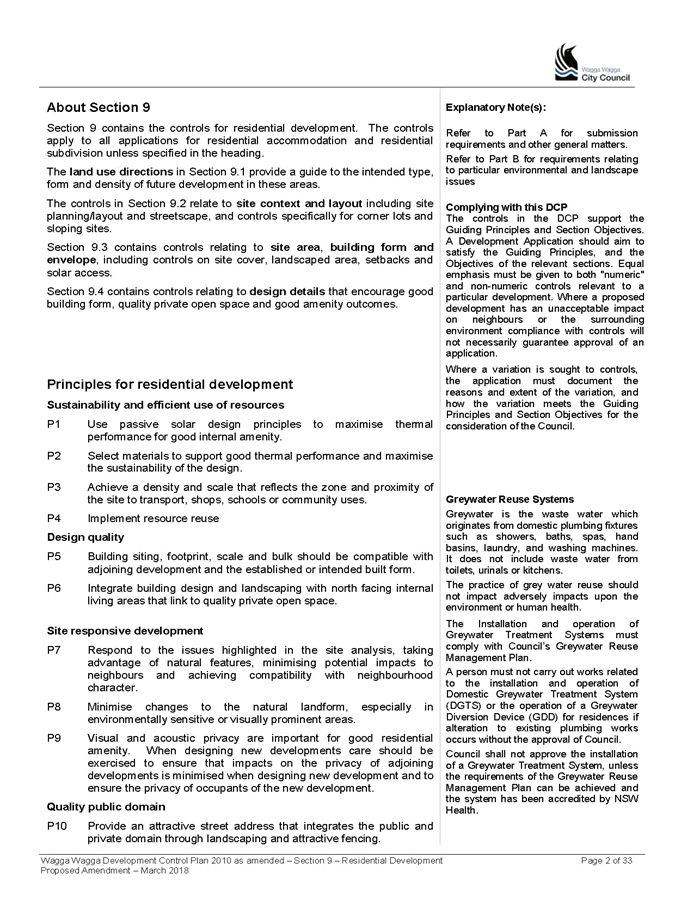 Wagga Wagga
City Council
About Section 9
Section 9 contains the controls for residential development. The controls
apply to all applications for residential accommodation and residential
subdivision unless specified in the heading.
The land use directions in Section 9.1 provide a guide to the intended type,
form and density of future development in these areas.
The controls in Section 9.2 relate to site context and layout including site
planning/layout and streetscape, and controls specifically for corner lots and
sloping sites.
Section 9.3 contains controls relating to site area, building form and
envelope, including controls on site cover, landscaped area, setbacks and
solar access.
Section 9.4 contains controls relating to design details that encourage good
building form, quality private open space and good amenity outcomes.
Principles for residential development
Sustainability and efficient use of resources
P1 Use passive solar design principles to maximise thermal
performance for good internal amenity.
P2 Select materials to support good thermal performance and maximise
the sustainability of the design.
P3 Achieve a density and scale that reflects the zone and proximity of
the site to transport, shops, schools or community uses.
P4 Implement resource reuse
Design quality
P5 Building siting, footprint, scale and bulk should be compatible with
adjoining development and the established or intended built form.
P6 Integrate building design and landscaping with north facing internal
living areas that link to quality private open space.
Site responsive development
P7 Respond to the issues highlighted in the site analysis, taking
advantage of natural features, minimising potential impacts to
neighbours and achieving compatibility with neighbourhood
character.
P8 Minimise changes to the natural landform, especially in
environmentally sensitive or visually prominent areas.
P9 Visual and acoustic privacy are important for good residential
amenity. When designing new developments care should be
exercised to ensure that impacts on the privacy of adjoining
developments is minimised when designing new development and to
ensure the privacy of occupants of the new development.
Quality public domain
P10 Provide an attractive street address that integrates the public and
private domain through landscaping and attractive fencing.
Explanatory Note(s):
Refer to Part A for submission
requirements and other general matters.
Refer to Part B for requirements relating
to particular environmental and landscape
issues
Complying with this DCP
The controls in the DCP support the
Guiding Principles and Section Objectives.
A Development Application should aim to
satisfy the Guiding Principles, and the
Objectives of the relevant sections. Equal
emphasis must be given to both "numeric"
and non-numeric controls relevant to a
particular development. Where a proposed
development has an unacceptable impact
on neighbours or the surrounding
environment compliance with controls will
not necessarily guarantee approval of an
application.
Where a variation is sought to controls,
the application must document the
reasons and extent of the variation, and
how the variation meets the Guiding
Principles and Section Objectives for the
consideration of the Council.
Greywater Reuse Systems
Greywater is the waste water which
originates from domestic plumbing fixtures
such as showers, baths, spas, hand
basins, laundry, and washing machines.
It does not include waste water from
toilets, urinals or kitchens.
The practice of grey water reuse should
not impact adversely impacts upon the
environment or human health.
The Installation and operation of
Greywater Treatment Systems must
comply with Council's Greywater Reuse
Management Plan.
A person must not carry out works related
to the installation and operation of
Domestic Greywater Treatment System
(DGTS) or the operation of a Greywater
Diversion Device (GDD) for residences if
alteration to existing plumbing works
occurs without the approval of Council.
Council shall not approve the installation
of a Greywater Treatment System, unless
the requirements of the Greywater Reuse
Management Plan can be achieved and
the system has been accredited by NSW
Health.
Wagga Wagga Development Control Plan 2010 as amended – Section 9 – Residential Development Page 2 of 33
Proposed Amendment – March 2018